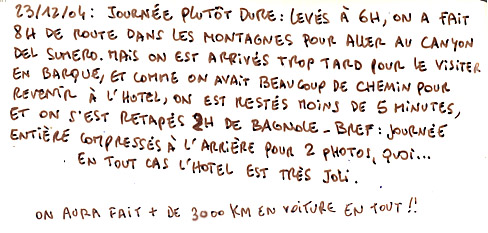 23/12/04 : JOURNÉE PLUTÔT DURE : LEVÉS À 6H, ON A FAIT
8H DE ROUTE DANS LES MONTAGNES POUR ALLER AU CANYON
DEL SUMERO. MAIS ON EST ARRIVÉS TROP TARD POUR LE VISITER
EN BARQUE, ET COMME ON AVAIT BEAUCOUP DE CHEMIN POUR
REVENIR À L'HOTEL, ON EST RESTÉS MOINS DE 5 MINUTES,
ET ON S'EST RETAPÉS 2H DE BAGNOLE - BREF : JOURNÉE
ENTIÈRE COMPRESSÉS À L'ARRIÈRE POUR 2 PHOTOS, QUOI...
EN TOUT CAS L'HOTEL EST TRÈS JOLI.
ON AURA FAIT + DE 3000 KM EN VOITURE EN TOUT !!